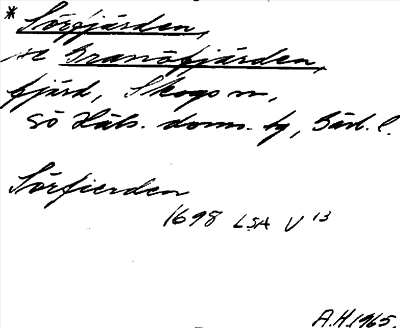 * Sörfjärden,
se Granöfjärden,
fjärd, Skogs sn,
Sö Häls. doms. tg, Gävl. l.
Sörfierden
1698 LSA V 13
A.H. 1965.